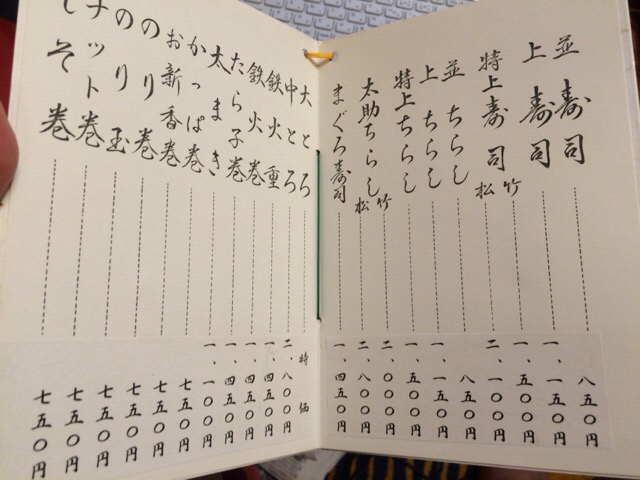 並寿司 八五〇円
上寿司 一、一五〇円
特上寿司 竹 一、五〇〇円
松 二、一〇〇円
並ちらし 八五〇円
上ちらし 一、一五〇円
特上ちらし 一、五〇〇円
太助ちらし 竹 二、〇〇〇円
松 二、八〇〇円
まぐろ寿司 一、四五〇円
大とろ 時価
中とろ 二、八〇〇円
鉄火重 一、四五〇円
鉄火巻 一、四五〇円
たら子巻 一、四五〇円
太まき 一、一〇〇円
かっぱ巻 七五〇円
お新香巻 七五〇円
のり巻 七五〇円
のり玉 七五〇円
ナット巻 七五〇円
しそ巻 七五〇円